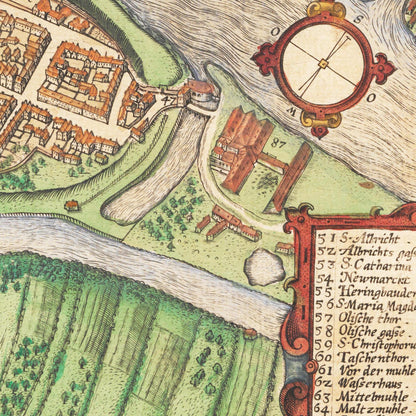 O
S
W
O
47
87
51 S. Albricht
52 Albrichts gasse
53 S. Catharina
54 Newmarckt
55 Heringbauder
56 S. Maria Magde
57 Olische thor
58 Olische gasse
59 S. Christophoru
60 Taschenthor.
61 Vor der muhle
62 Wasserhaus
63 Mittelmuhle
64 Maltzmuhle.